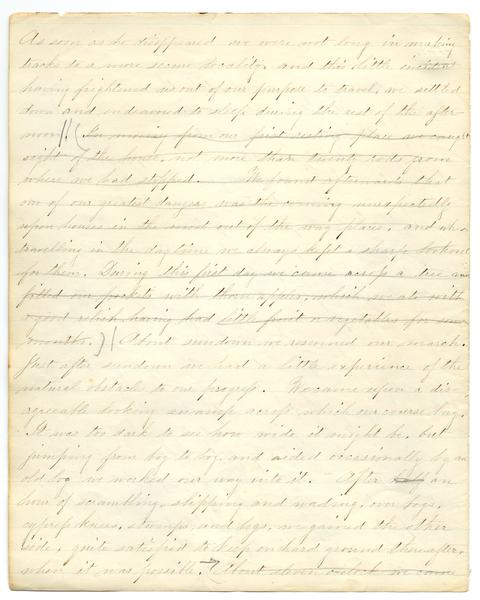 As soon as he disappeared we were not long in making
tracks to a more secure locality, and this little incident
having frightened us out of our purpose to travel, we settled
down and endeavored to sleep during the rest of the after
noon. (In moving from our first resting place we caught
sight of the house, not more than twenty rods from
where we had stopped. We found afterwards that
one of our greatest dangers was the coming unexpectedly
upon houses in the most out of the way places, and when
travelling in the daytime we always kept a sharp lookout
for them. During this first day we came across a tree and
filled our pockets with thorn apples, which we ate with
a good relish having had little fruit or vegetables for some
months.) About sundown we resumed our march.
Just after sundown we had a little experience of the
natural obstacles to our progress. We came upon a dis-
agreeable looking swamp across which our course lay.
It was too dark to see how wide it might be, but
jumping from bog to bog, and aided occasionally by an
old log we worked our way into it. After half an
hour of scrambling, slipping and wading, over bogs,
cypress knees, stumps, and logs, we gained the other
side, quite satisfied to keep on hard ground thereafter,
when it was possible. (About eleven o'clock we came